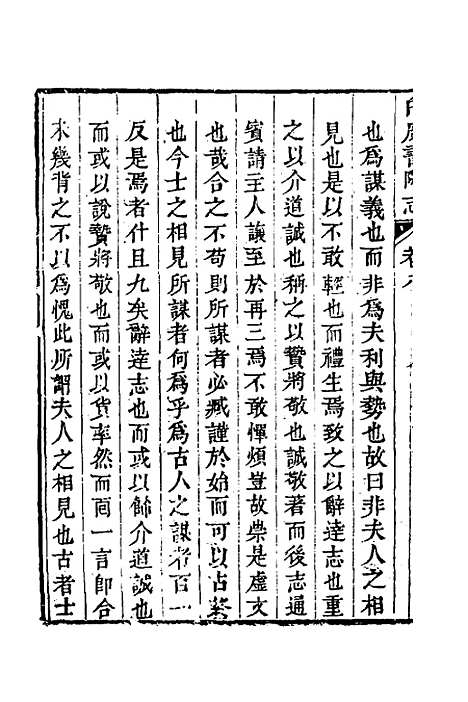 白鹿書院志 卷
也爲謀義也而非爲夫利與勢也故曰非夫人之相
見也是以不敢輕也而禮生焉致之以辭達志也重
之以介道誠也稱之以贄將敬也誠敬著而後志通
賓請主人讓至於再三焉不敢憚煩豈故崇是虛文
也哉合之不苟則所謀者必臧謹於始而可以占終
也今士之相見所謀者何爲乎爲古人之謀者百一
反是焉者什且九矣辭達志也而或以餙介道誠也
而或以說贄將敬也而或以貨率然而面一言卽合
未幾背之不以爲愧此所謂夫人之相見也古者士